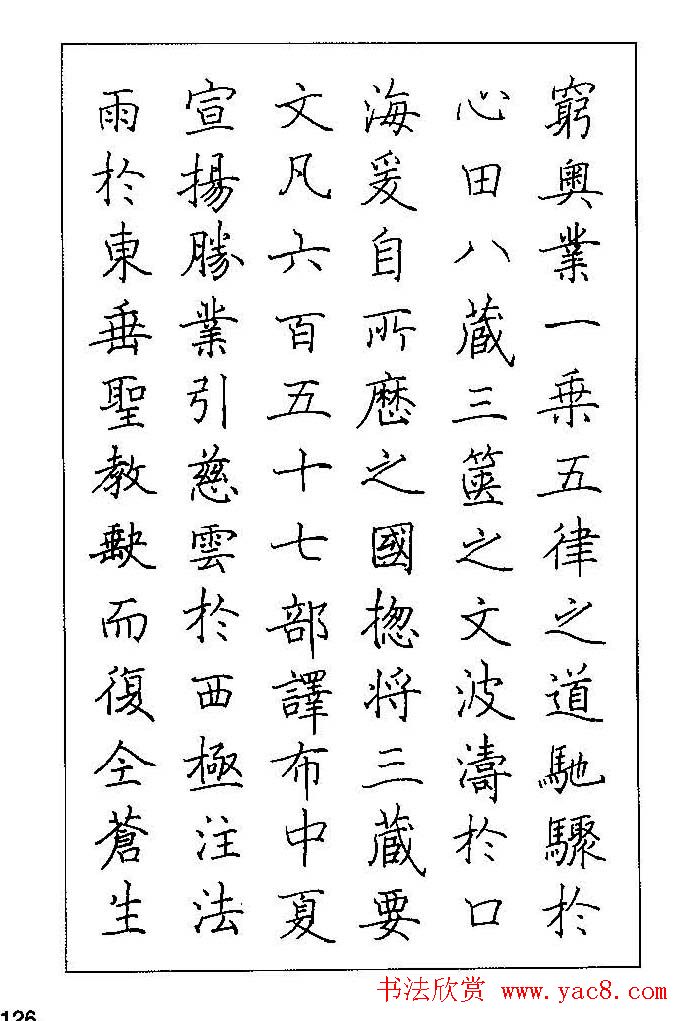 窮奧業一乗五律之道馳驟於
心田八蔵三篋之文波濤於口
海爰自所歷之國揔将三蔵要
文凡六百五十七部譯布中夏
宣揚勝業引慈雲於西極注法
雨於東垂聖教缺而復全蒼生
126
书法欣赏 www.yac8.com